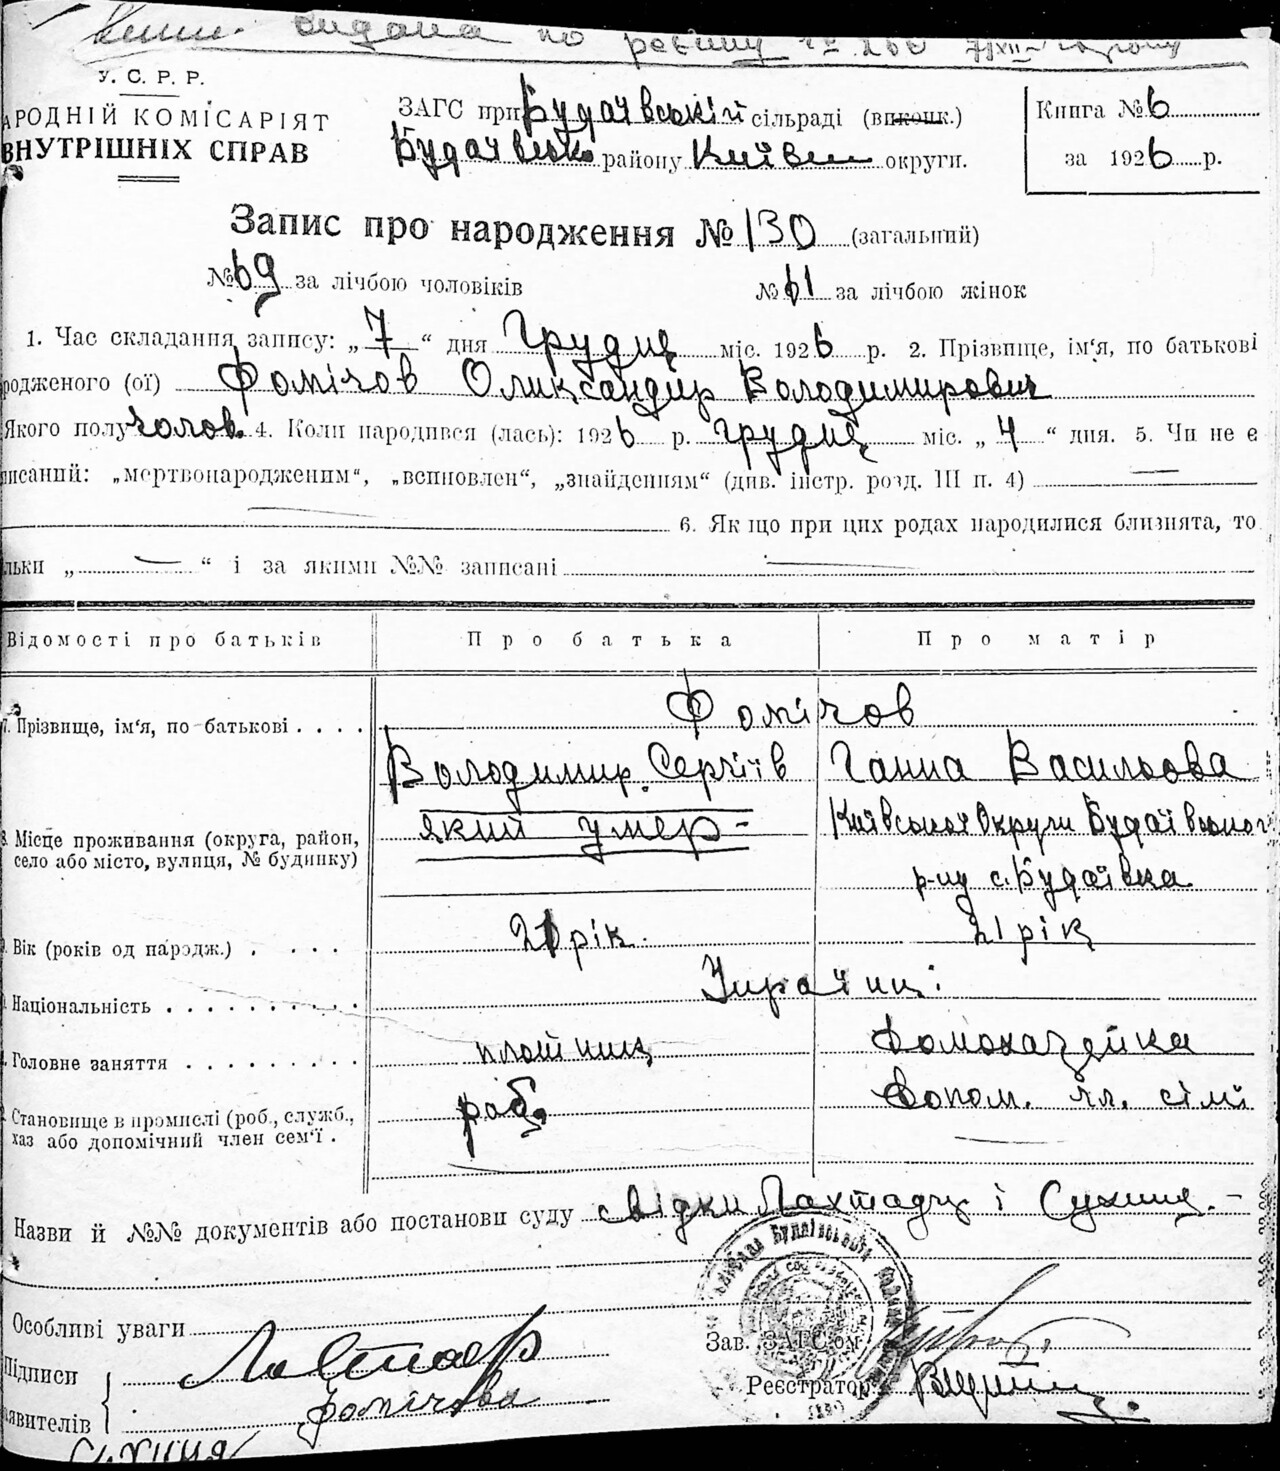 видана по
У. С. Р. Р.
АРОДНІЙ КОМІСАРІЯТ
ВНУТРІШНІХ СПРАВ
ЗАГС при Будаївській сільраді (виконк.)
Будаївсько району Київськ округи.
Книга № 6
за 1926 р.
Запис про народження № 130 (загальний)
№ 69 за лічбою чоловіків
№ 61 за лічбою жінок
1. Час складання запису: „7“ дня Грудня міс. 1926 р. 2. Прізвище, ім‘я, по батькові
родженого (ої) Фомічов Олександир Володимирович
Якого полу чолов. 4. Коли народився (лась): 1926 р. грудня міс. „4“ дня. 5. Чи не є
писаний: „мертвонародженим“, „всиновлен“, „знайденням“ (див. інстр. розд. III п. 4)
6. Як що при цих родах народилися близнята, то
льки „ “ і за якими №№ записані
Відомості про батьків
Про батька
Про матір
7. Прізвище, ім‘я, по-батькові . . . .
Фомічов
Володимир Сергіїв
Ганна Васильова
8. Місце проживання (округа, район,
село або місто, вулиця, № будинку)
який умер-
Київської Округи Будаївського
р-ну с. Будаївка
9. Вік (років од народж.) . . . .
21 рік.
21 рік
Національність . . . . . . . . .
Українці
Головне заняття . . . . . . . . .
плотник
Домохазяйка
Становище в промислі (роб., служб.,
хаз або допомічний член сем‘ї .
роб.
Допом. чл. сімї
Назви й №№ документів або постанови суду свідки Лахтадир і Сухиня.-
Особливі уваги
Підписи
аявителів
Фомічова
Сухиня
Зав. ЗАГС‘ом
Реєстратор